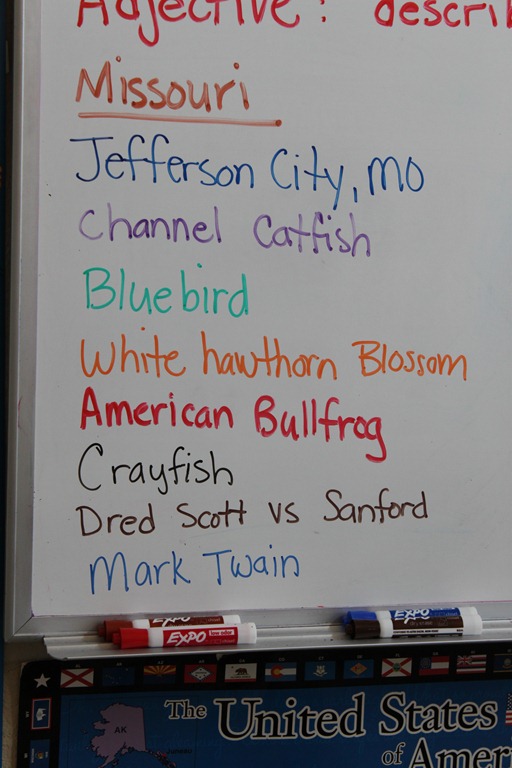 Adjective: describ
Missouri
Jefferson City, MO
Channel Catfish
Bluebird
White hawthorn Blossom
American Bullfrog
Crayfish
Dred Scott vs Sanford
Mark Twain
EXPO
EXPO
EXPO
AK
The United States
of Amer